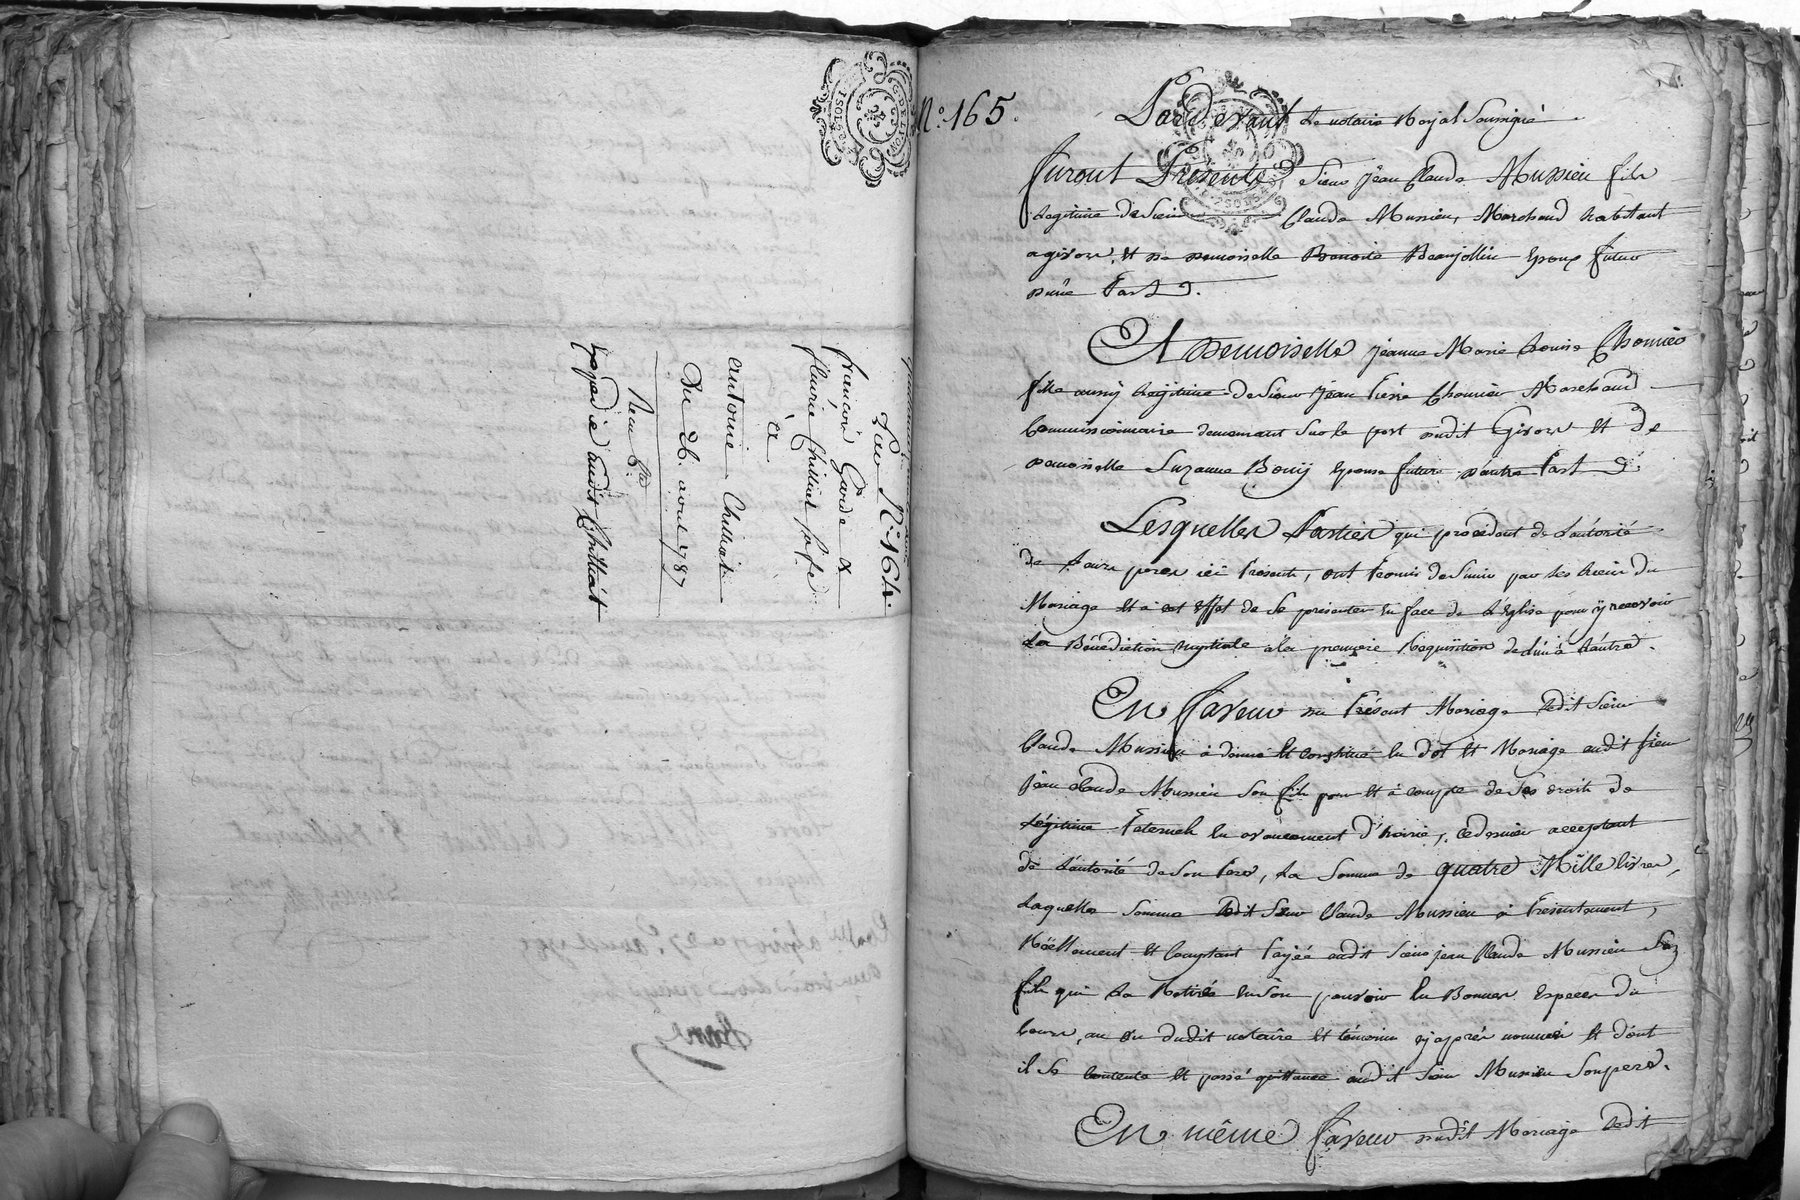 G. DE LYON
2 SOLS
N.° 164.
françois Garde &
fleurie Chilliat sa fe.
à
antoine Chilliat
Du 26. aout 1787
Recu 6.tt
Expedié audit Chilliat
N.° 165.
Pardevant Le notaire Royal Soussigné
furent Présents Sieur jean Claude Mussieu fils
Legitime de Sieur Claude Mussieu, Marchand habitant
a givors, et de demoiselle Benoite Beaujollin Epoux futur
d'une Part &.
Et Demoiselle jeanne Marie Louise Chomier
fille aussy Legitime de Sieur jean Pierre Chomier Marchand
Commissionnaire demeurant Sur le port dudit Givors et de
demoiselle Suzanne Bouy Epouse future d'autre Part &.
Lesquelles Parties qui procédant de L'autorité
de Leurs peres ici Présents, ont Promis de S'unir par les Liens du
Mariage et à cet effet de Se présenter en face de L'église pour y recevoir
La Bénédiction nuptiale à la première Requisition de L'un à L'autre.
En faveur du Présent Mariage Ledit Sieur
Claude Mussieu à donné et constitué en dot et Mariage audit Sieur
jean claude Mussieu Son fils pour et à compte de Ses droits de
Légitime Paternels en avancement d'hoirie, ce dernier acceptant
de L'autorité de Son Pere, La Somme de quatre Mille livres,
Laquelle Somme Ledit Sieur Claude Mussieu à Présentement,
Réellement et Comptant Payée audit Sieur jean Claude Mussieu Son
fils qui La Retirée en Son pouvoir en Bonnes Especes du
Cours, au vu dudit notaire et témoins cy après nommés et dont
il Se contente et passé quittance audit Sieur Mussieu Son pere.
En même faveur dudit Mariage Ledit